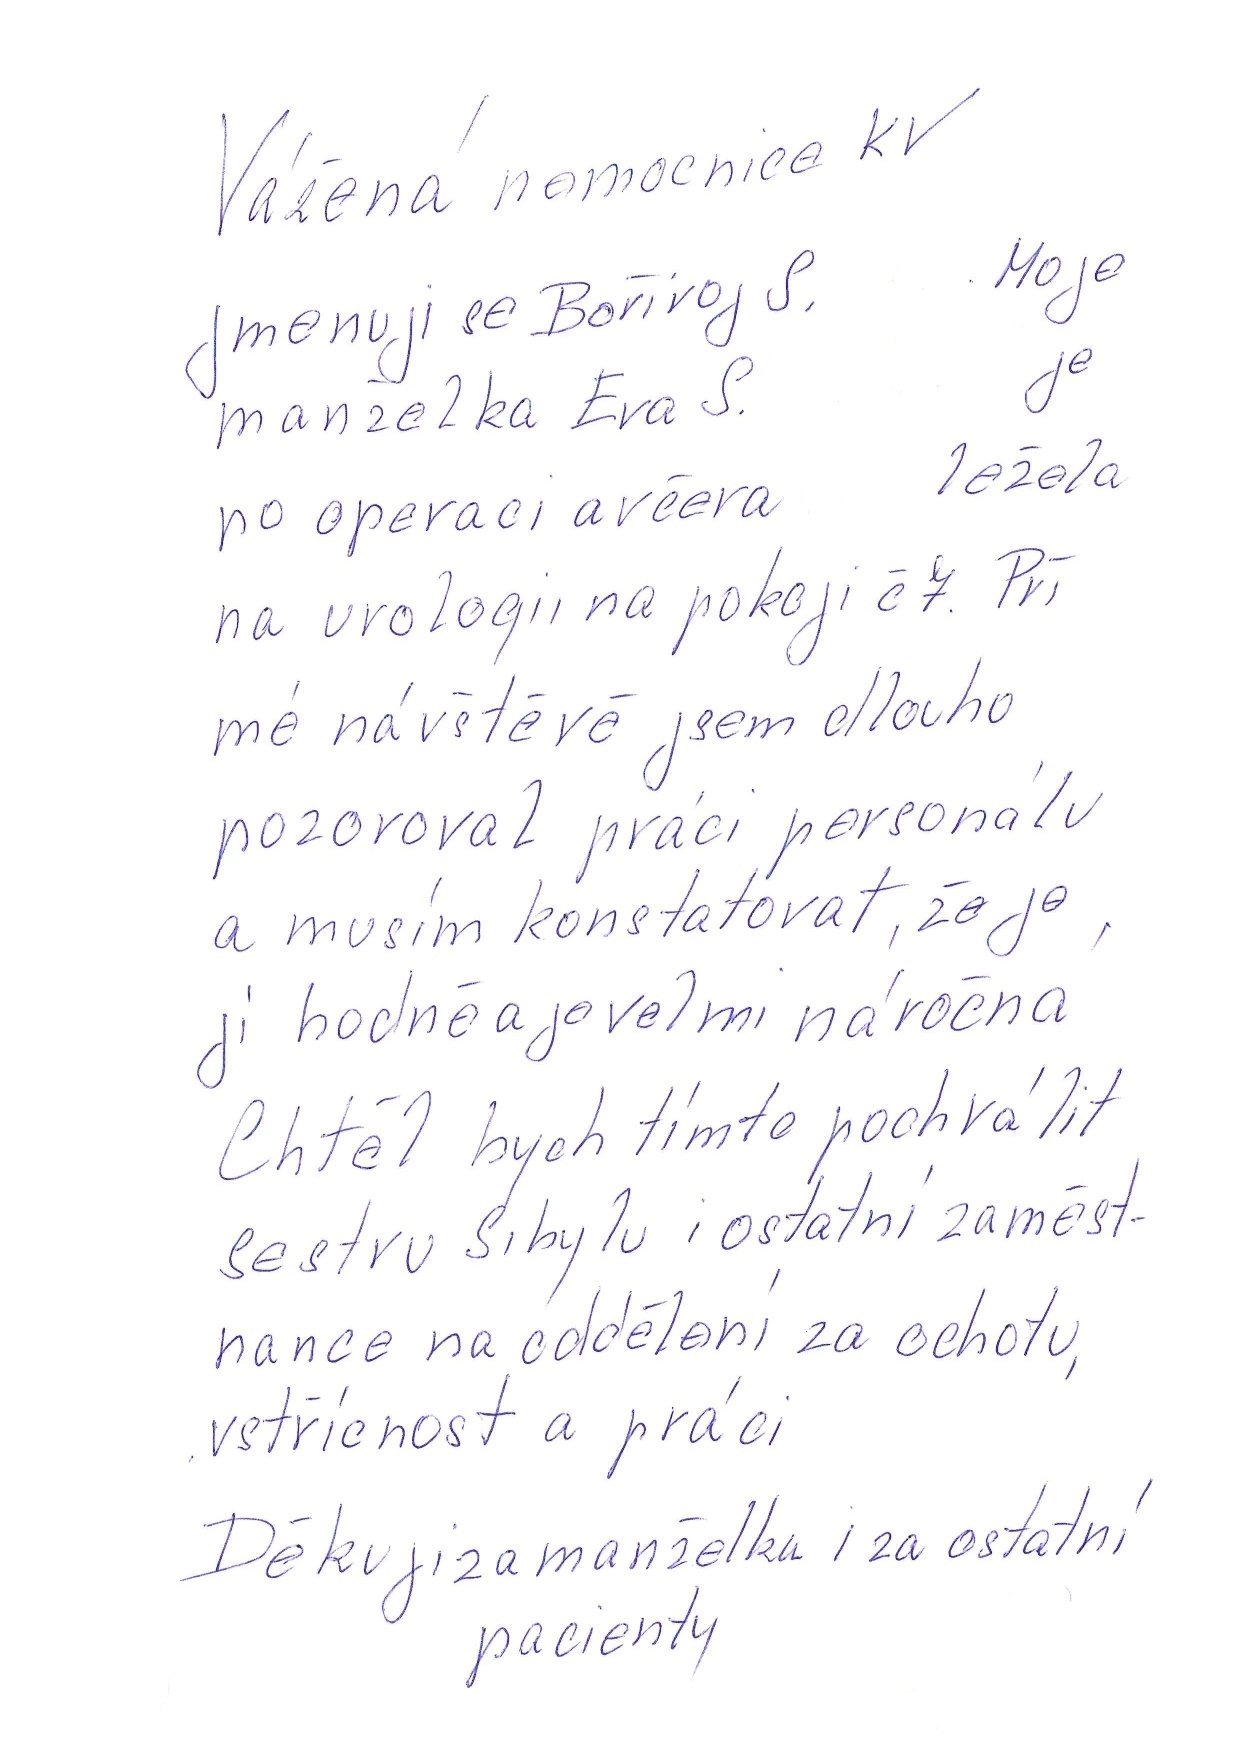 Vážená nemocnice KV
Jmenuji se Bořivoj S. Moje
manželka Eva S. je
po operaci a včera ležela
na urologii na pokoji č 7. Při
mé návštěvě jsem dlouho
pozoroval práci personálu
a musím konstatovat, že je,
jí hodně a je velmi náročna
Chtěl bych tímto pochválit
sestru Sibylu i ostatní zaměst-
nance na oddělení za ochotu,
vstřícnost a práci
Děkuji za manželku i za ostatní
pacienty